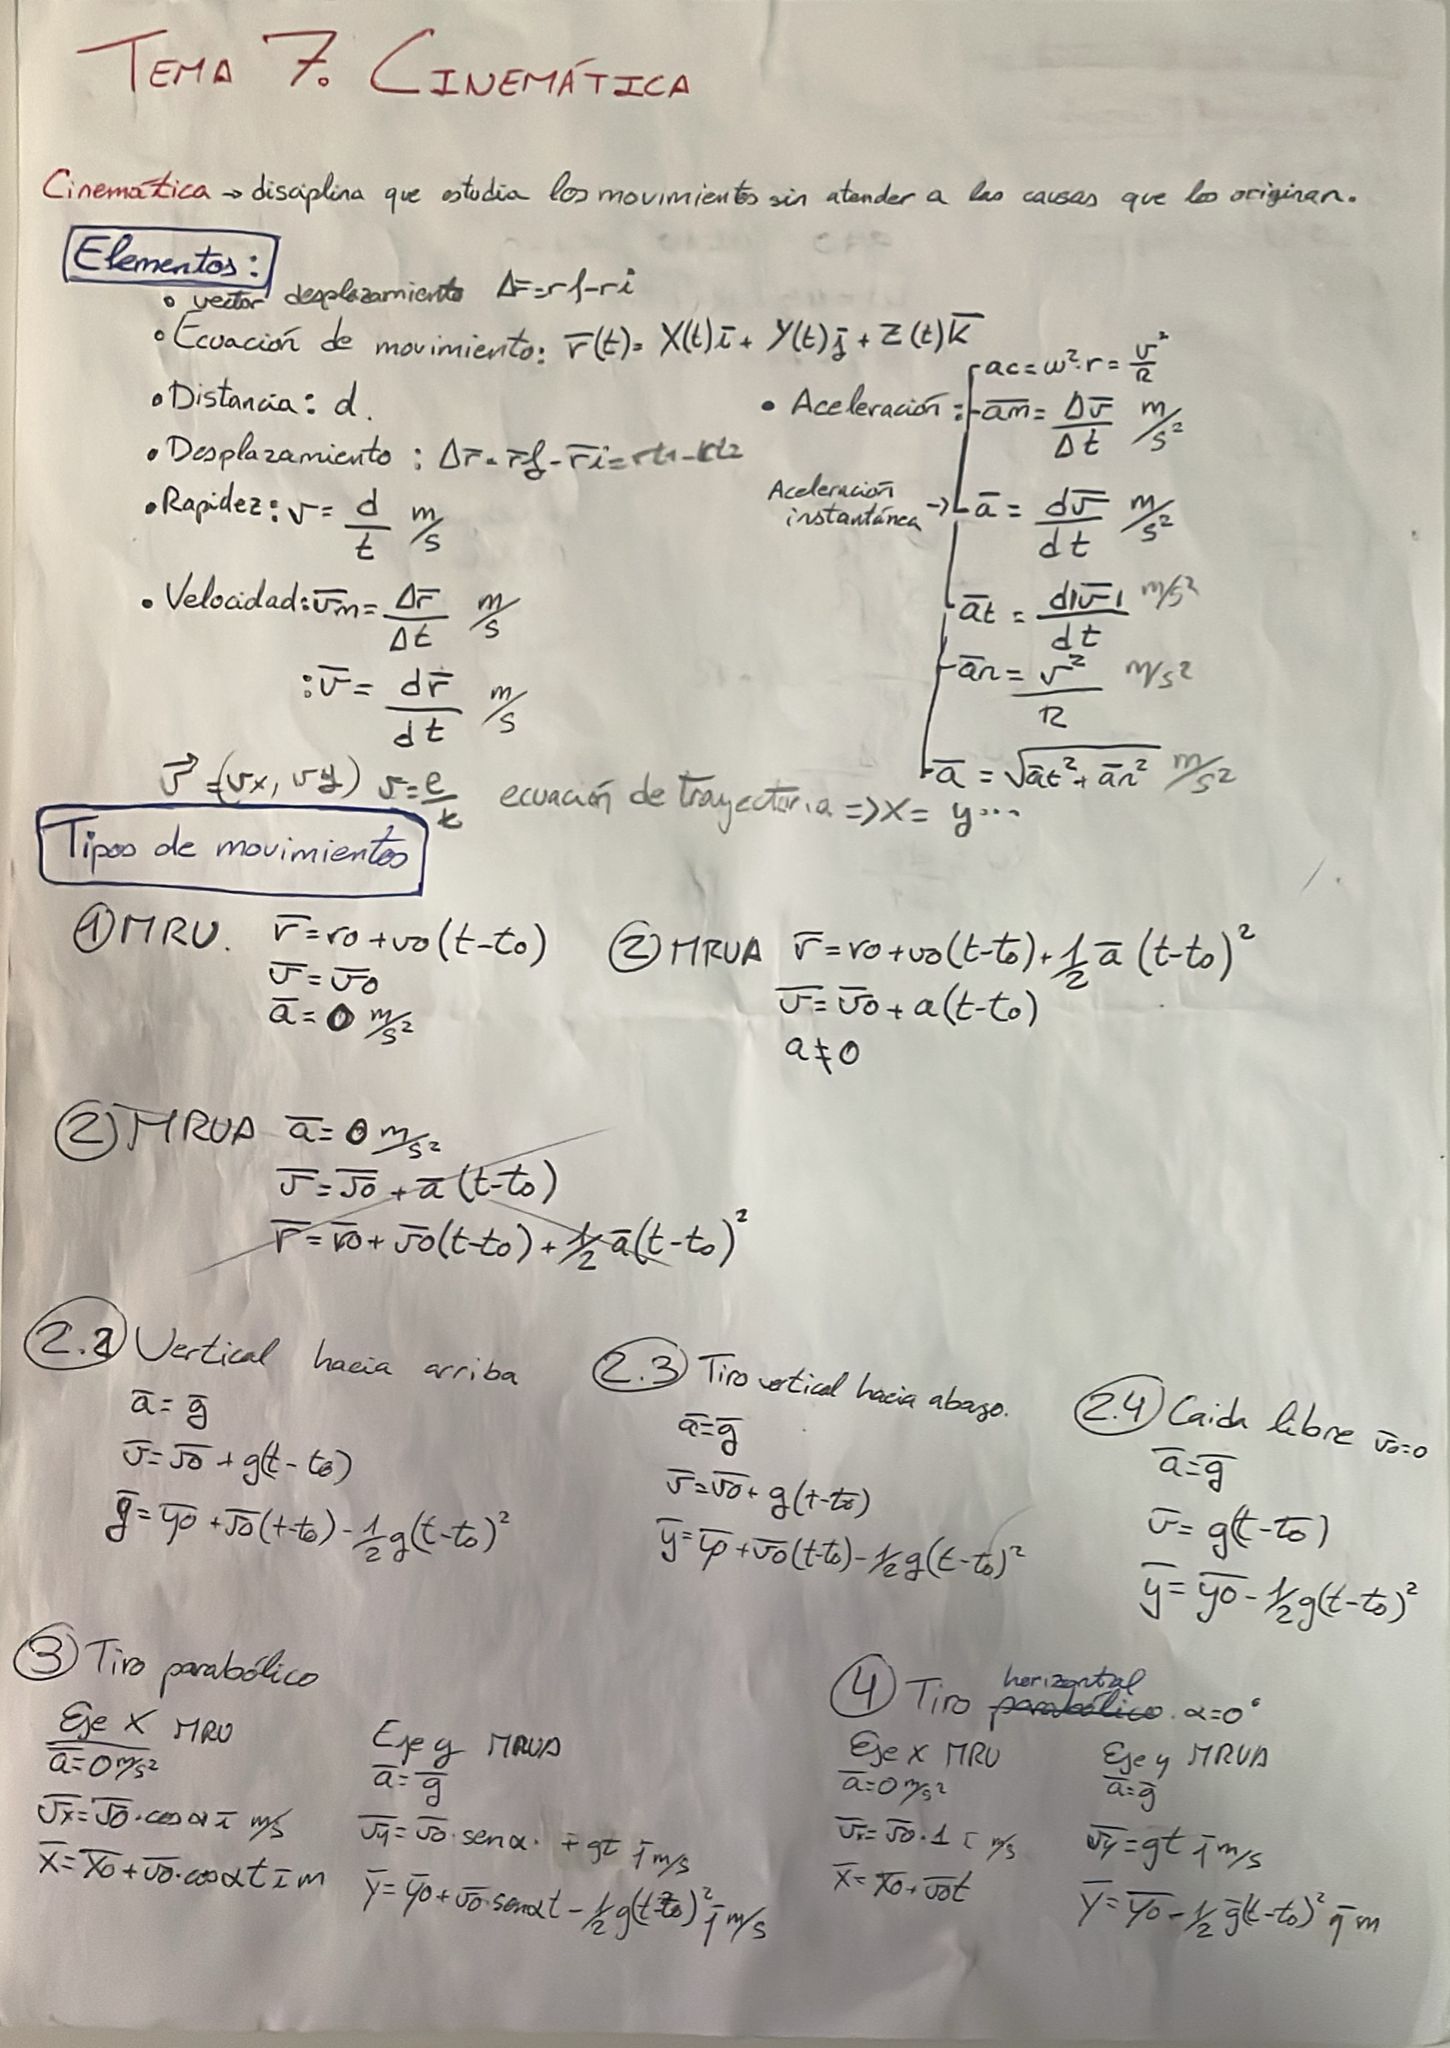 TEMA 7. CINEMÁTICA
Cinemática → disciplina que estudia los movimientos sin atender a las causas que los originan.
Elementos:
• vector desplazamiento Δr̄=rf-ri
• Ecuación de movimiento: r̄(t)= X(t)ī + Y(t)j̄ + Z(t)k̄
• Distancia: d.
• Desplazamiento: Δr̄ = r̄f - r̄i = rt1 - rt2
• Rapidez: v = d/t m/s
• Velocidad: v̄m = Δr̄/Δt m/s
: v̄ = dr̄/dt m/s
v⃗ = (vx, vy) v = e/t ecuación de trayectoria => X = y...
• Aceleración:
ac = w²·r = v²/R
ām = Δv̄/Δt m/s²
Aceleración instantánea → ā = dv̄/dt m/s²
āt = d|v̄|/dt m/s²
ān = v²/R m/s²
ā = √āt² + ān² m/s²
Tipos de movimientos
① MRU. r̄ = ro + vo (t-to)
v̄ = v̄o
ā = 0 m/s²
② MRUA r̄ = ro + vo(t-to) + 1/2 ā (t-to)²
v̄ = v̄o + a(t-to)
a ≠ 0
② MRUA ā = 0 m/s²
v̄ = v̄o + ā (t-to)
r̄ = r̄o + v̄o(t-to) + 1/2 ā(t-to)²
2.2 Vertical hacia arriba
ā = ḡ
v̄ = v̄o + g(t-to)
ȳ = ȳo + v̄o(t-to) - 1/2 g(t-to)²
2.3 Tiro vertical hacia abago.
ā = ḡ
v̄ = v̄o + g(t-to)
ȳ = ȳo + v̄o(t-to) - 1/2 g(t-to)²
2.4 Caida libre v̄o=0
ā = ḡ
v̄ = g(t-to)
ȳ = ȳo - 1/2 g(t-to)²
③ Tiro parabólico
Eje X MRU
ā = 0 m/s²
v̄x = v̄o·cos α ī m/s
x̄ = x̄o + v̄o·cos α t ī m
Eje y MRUA
ā = ḡ
v̄y = v̄o·sen α· + gt j̄ m/s
ȳ = ȳo + v̄o·sen α t - 1/2 g(t-to)² j̄ m/s
④ Tiro parabólico horizontal. α=0°
Eje X MRU
ā = 0 m/s²
v̄x = v̄o·1 ī m/s
x̄ = x̄o + v̄ot
Eje y MRUA
ā = ḡ
v̄y = gt j̄ m/s
ȳ = ȳo - 1/2 ḡ(t-to)² j̄ m